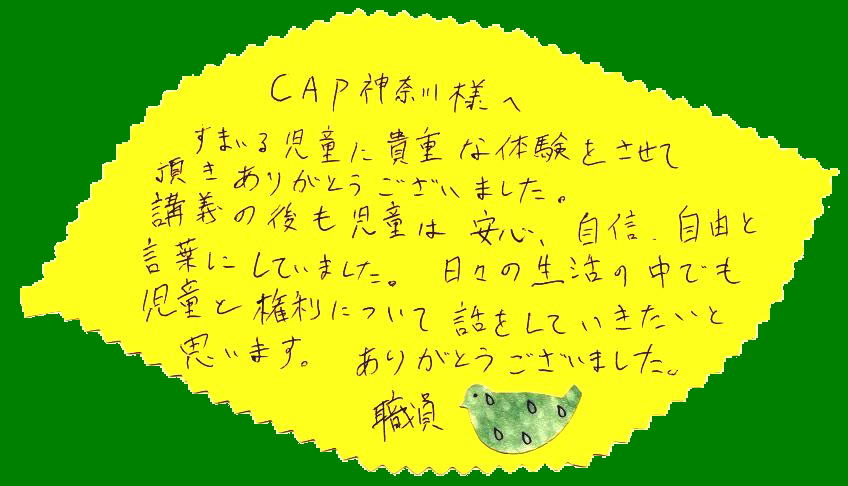 CAP神奈川様へ
すまいる児童に貴重な体験をさせて
頂きありがとうございました。
講義の後も児童は安心、自信、自由と
言葉にしていました。日々の生活の中でも
児童と権利について話をしていきたいと
思います。ありがとうございました。
職員